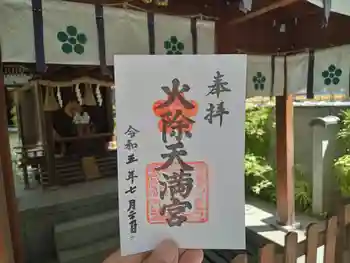 奉拝
火除天満宮
令和五年七月